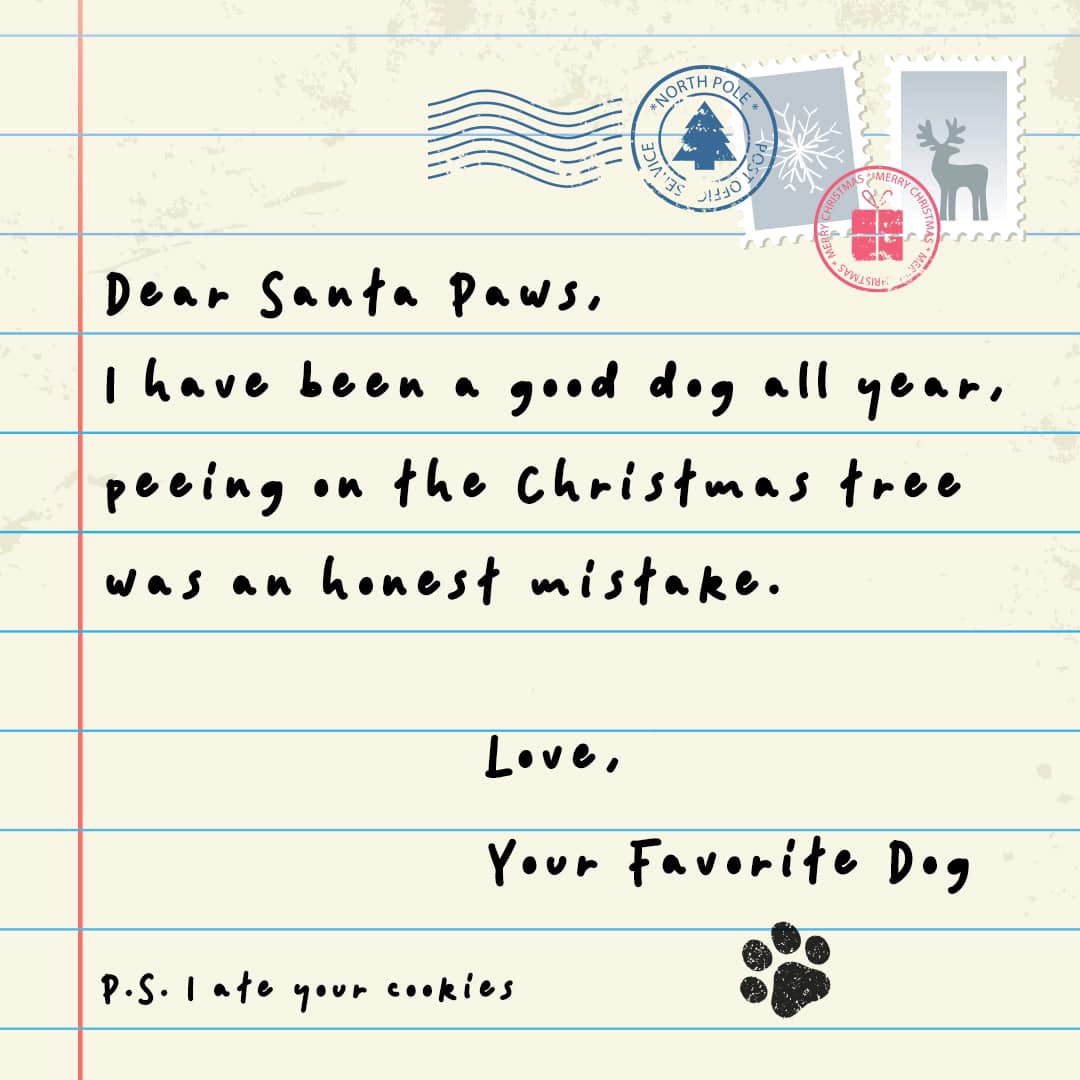 *NORTH POLE*
POST OFFICE SERVICE
MERRY CHRISTMAS * MERRY CHRISTMAS * MERRY CHRISTMAS *
Dear Santa Paws,
I have been a good dog all year,
peeing on the Christmas tree
was an honest mistake.
Love,
Your Favorite Dog
P.S. I ate your cookies